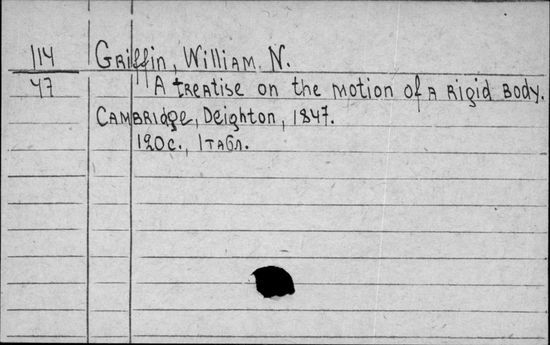 114 Griffin, William N.
47 A treatise on the motion of a rigid body.
Cambridge, Deighton, 1847.
120 с., 1 табл.